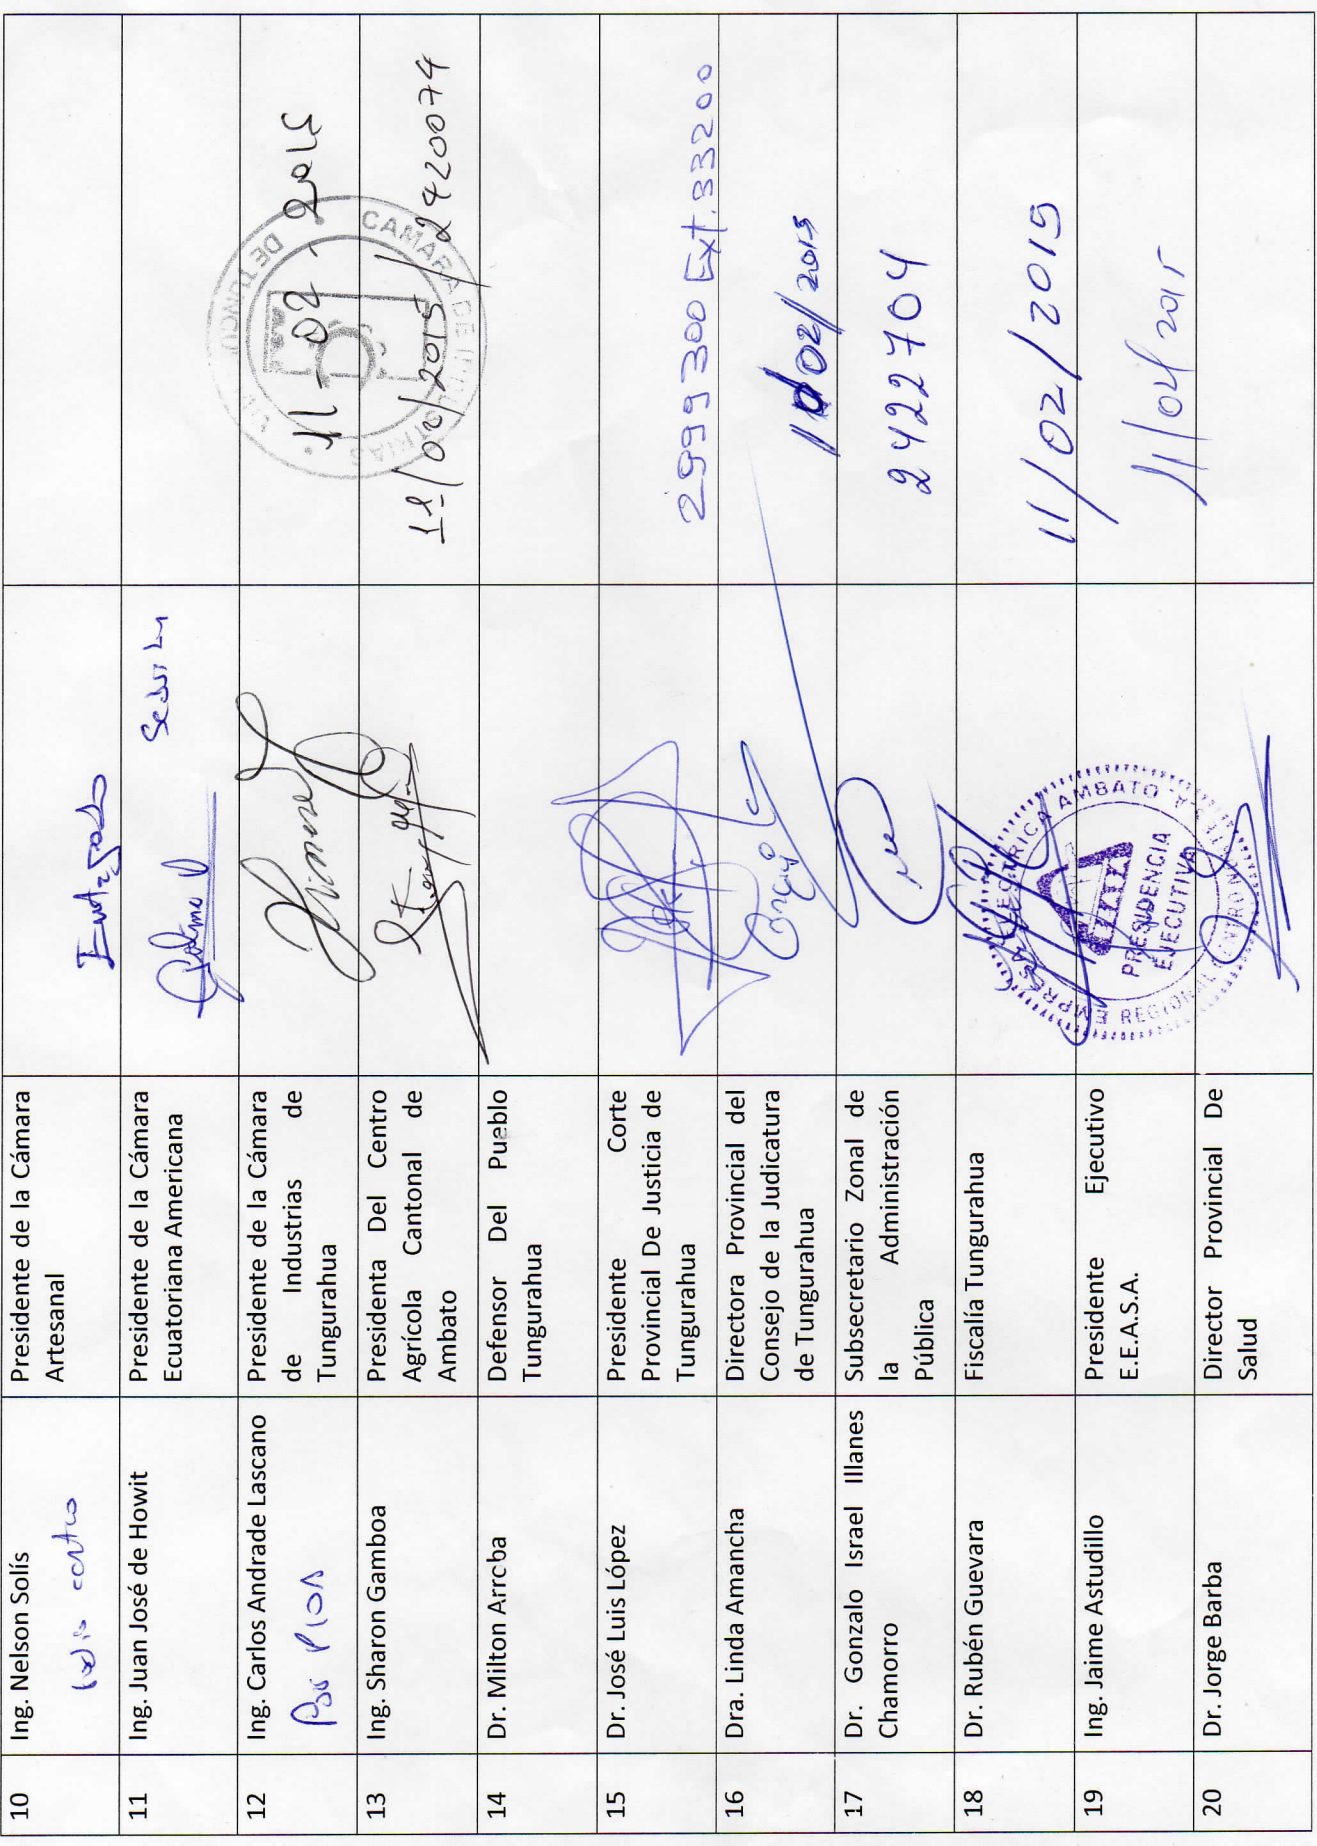 10
Ing. Nelson Solís
Presidente de la Cámara
Artesanal
11
Ing. Juan José de Howit
Presidente de la Cámara
Ecuatoriana Americana
12
Ing. Carlos Andrade Lascano
Presidente de la Cámara
de Industrias de
Tungurahua
11-02-2015
13
Ing. Sharon Gamboa
Presidenta Del Centro
Agrícola Cantonal de
Ambato
11/02/2015 / 2420074
CAMARA DE INDUSTRIAS
14
Dr. Milton Arroba
Defensor Del Pueblo
Tungurahua
15
Dr. José Luis López
Presidente Corte
Provincial De Justicia de
Tungurahua
2999300 Ext. 33200
16
Dra. Linda Amancha
Directora Provincial del
Consejo de la Judicatura
de Tungurahua
11/02/2015
17
Dr. Gonzalo Israel Illanes
Chamorro
Subsecretario Zonal de
la Administración
Pública
2422704
18
Dr. Rubén Guevara
Fiscalía Tungurahua
11/02/2015
19
Ing. Jaime Astudillo
Presidente Ejecutivo
E.E.A.S.A.
PRESIDENCIA
EJECUTIVA
20
Dr. Jorge Barba
Director Provincial De
Salud